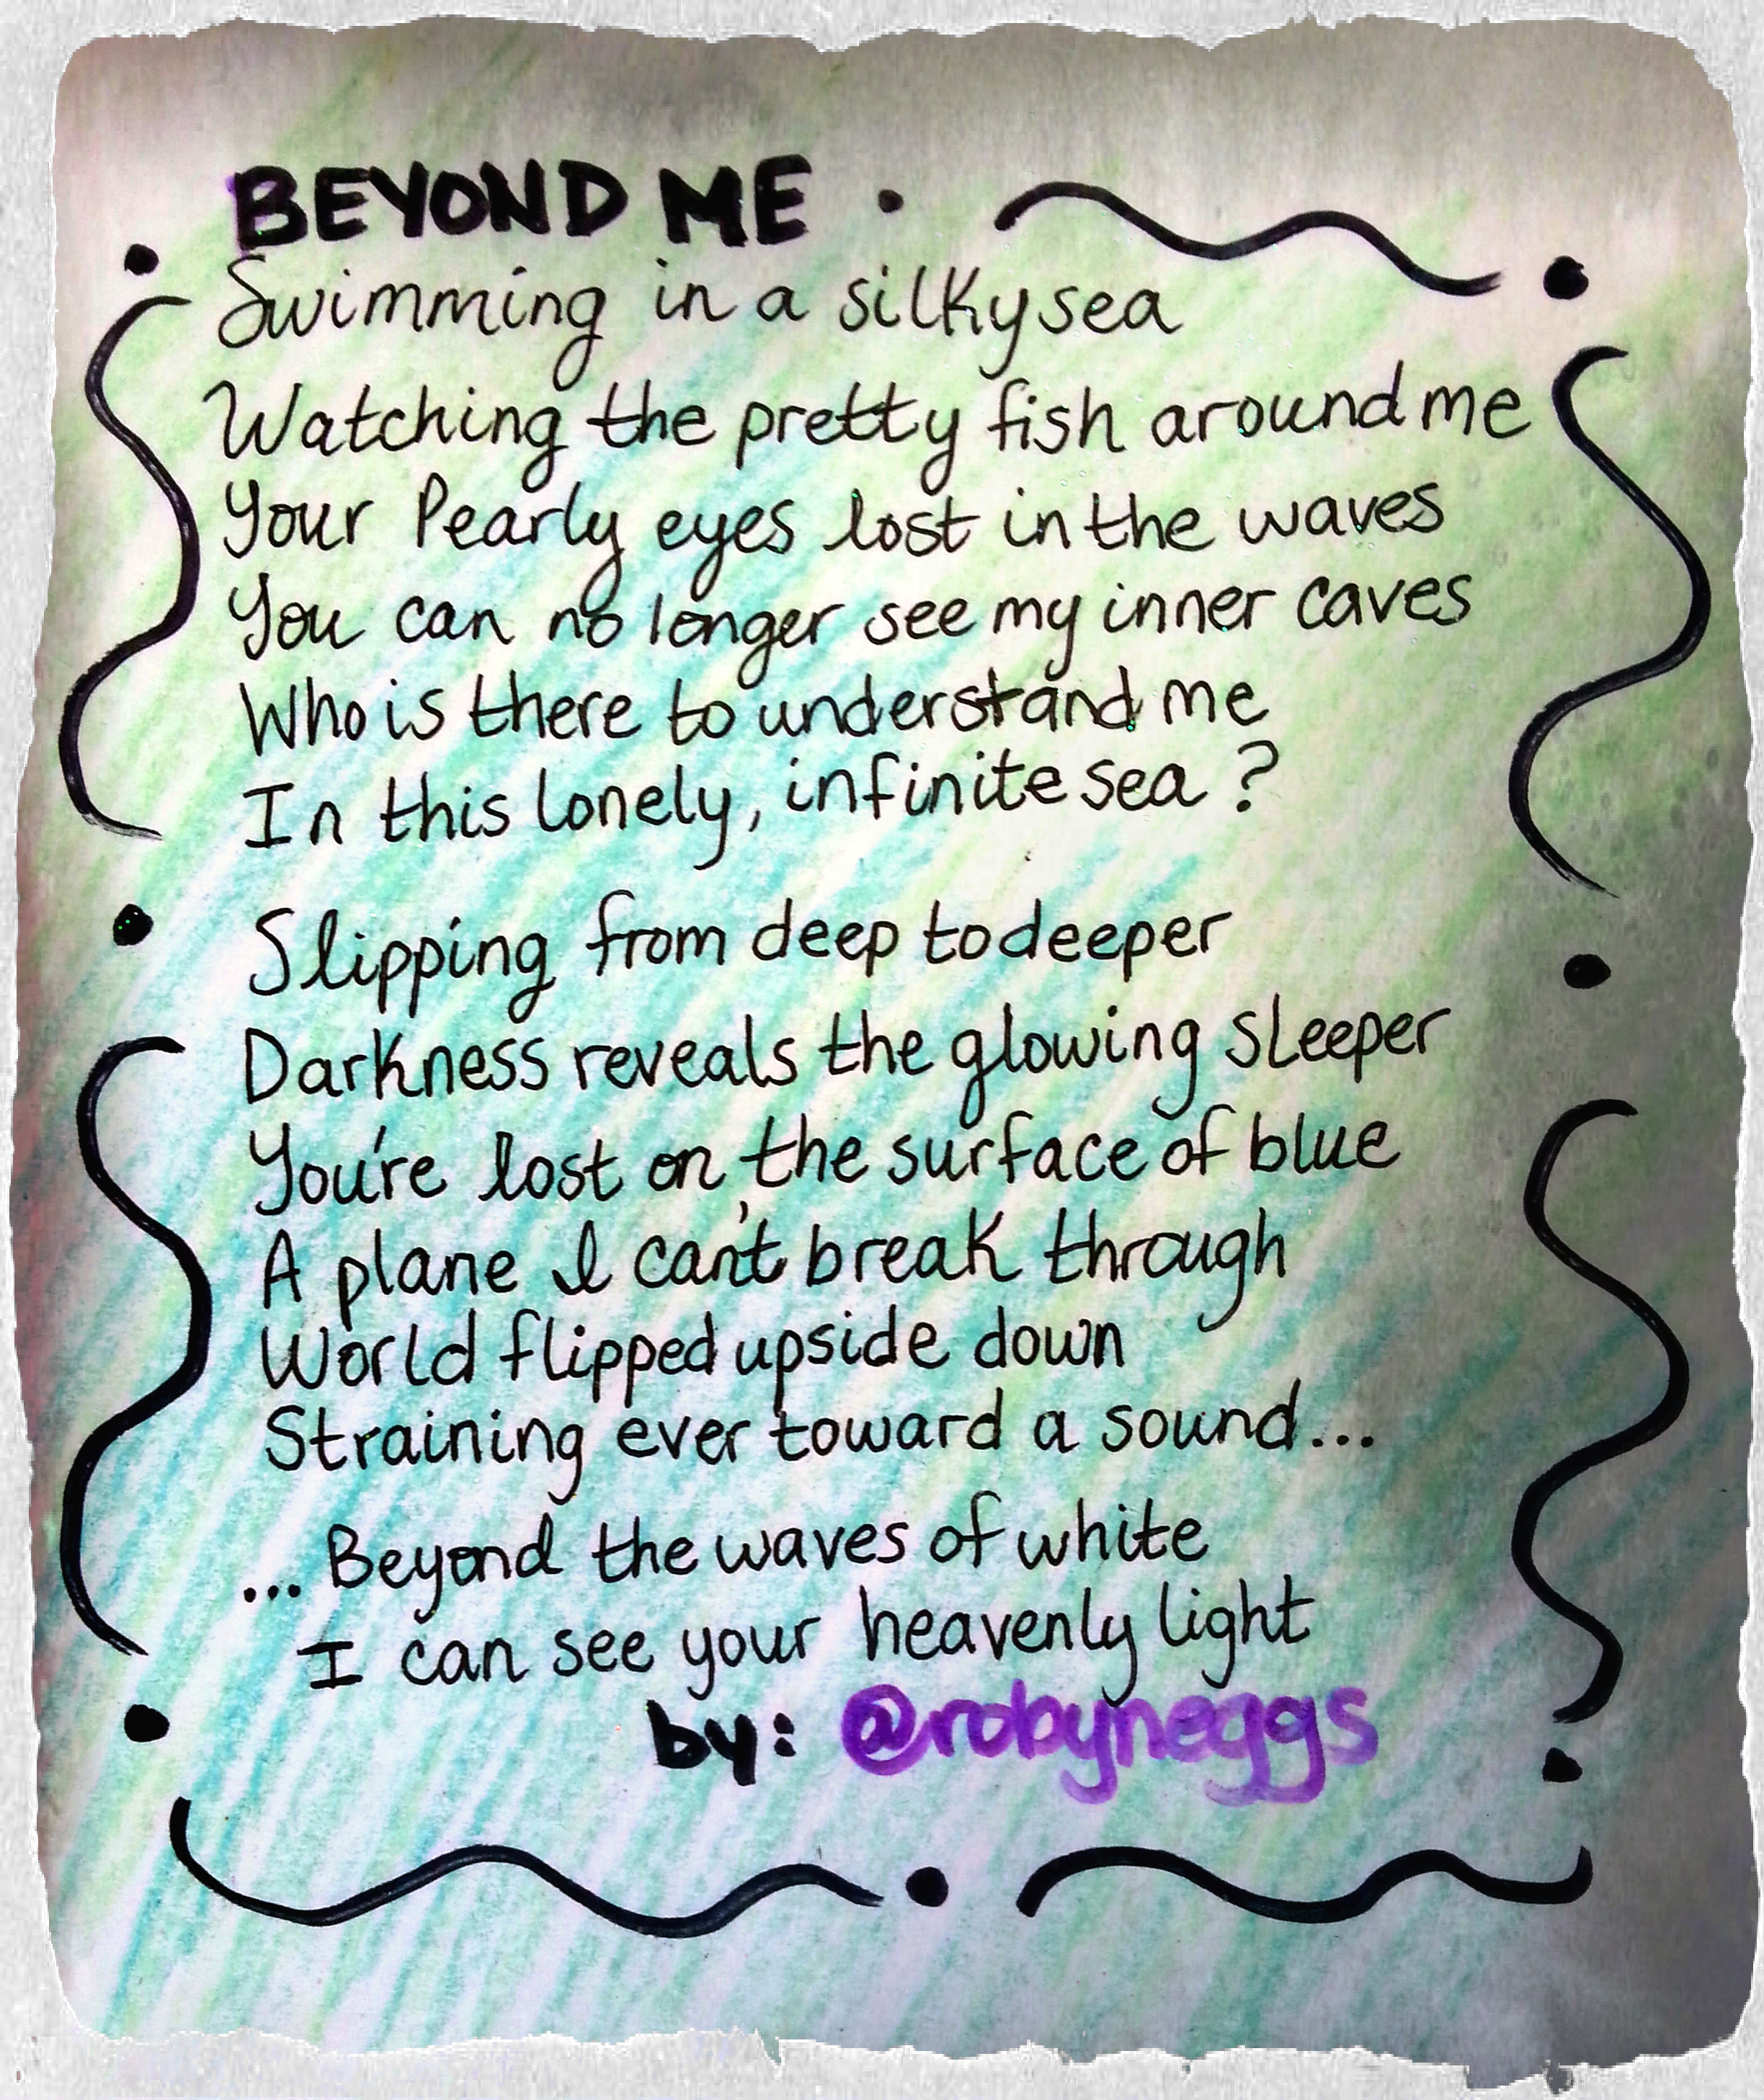 BEYOND ME
Swimming in a silky sea
Watching the pretty fish around me
Your Pearly eyes lost in the waves
You can no longer see my inner caves
Who is there to understand me
In this lonely, infinite sea?
Slipping from deep to deeper
Darkness reveals the glowing sleeper
You're lost on the surface of blue
A plane I can't break through
World flipped upside down
Straining ever toward a sound...
...Beyond the waves of white
I can see your heavenly light
by: @robyneggs